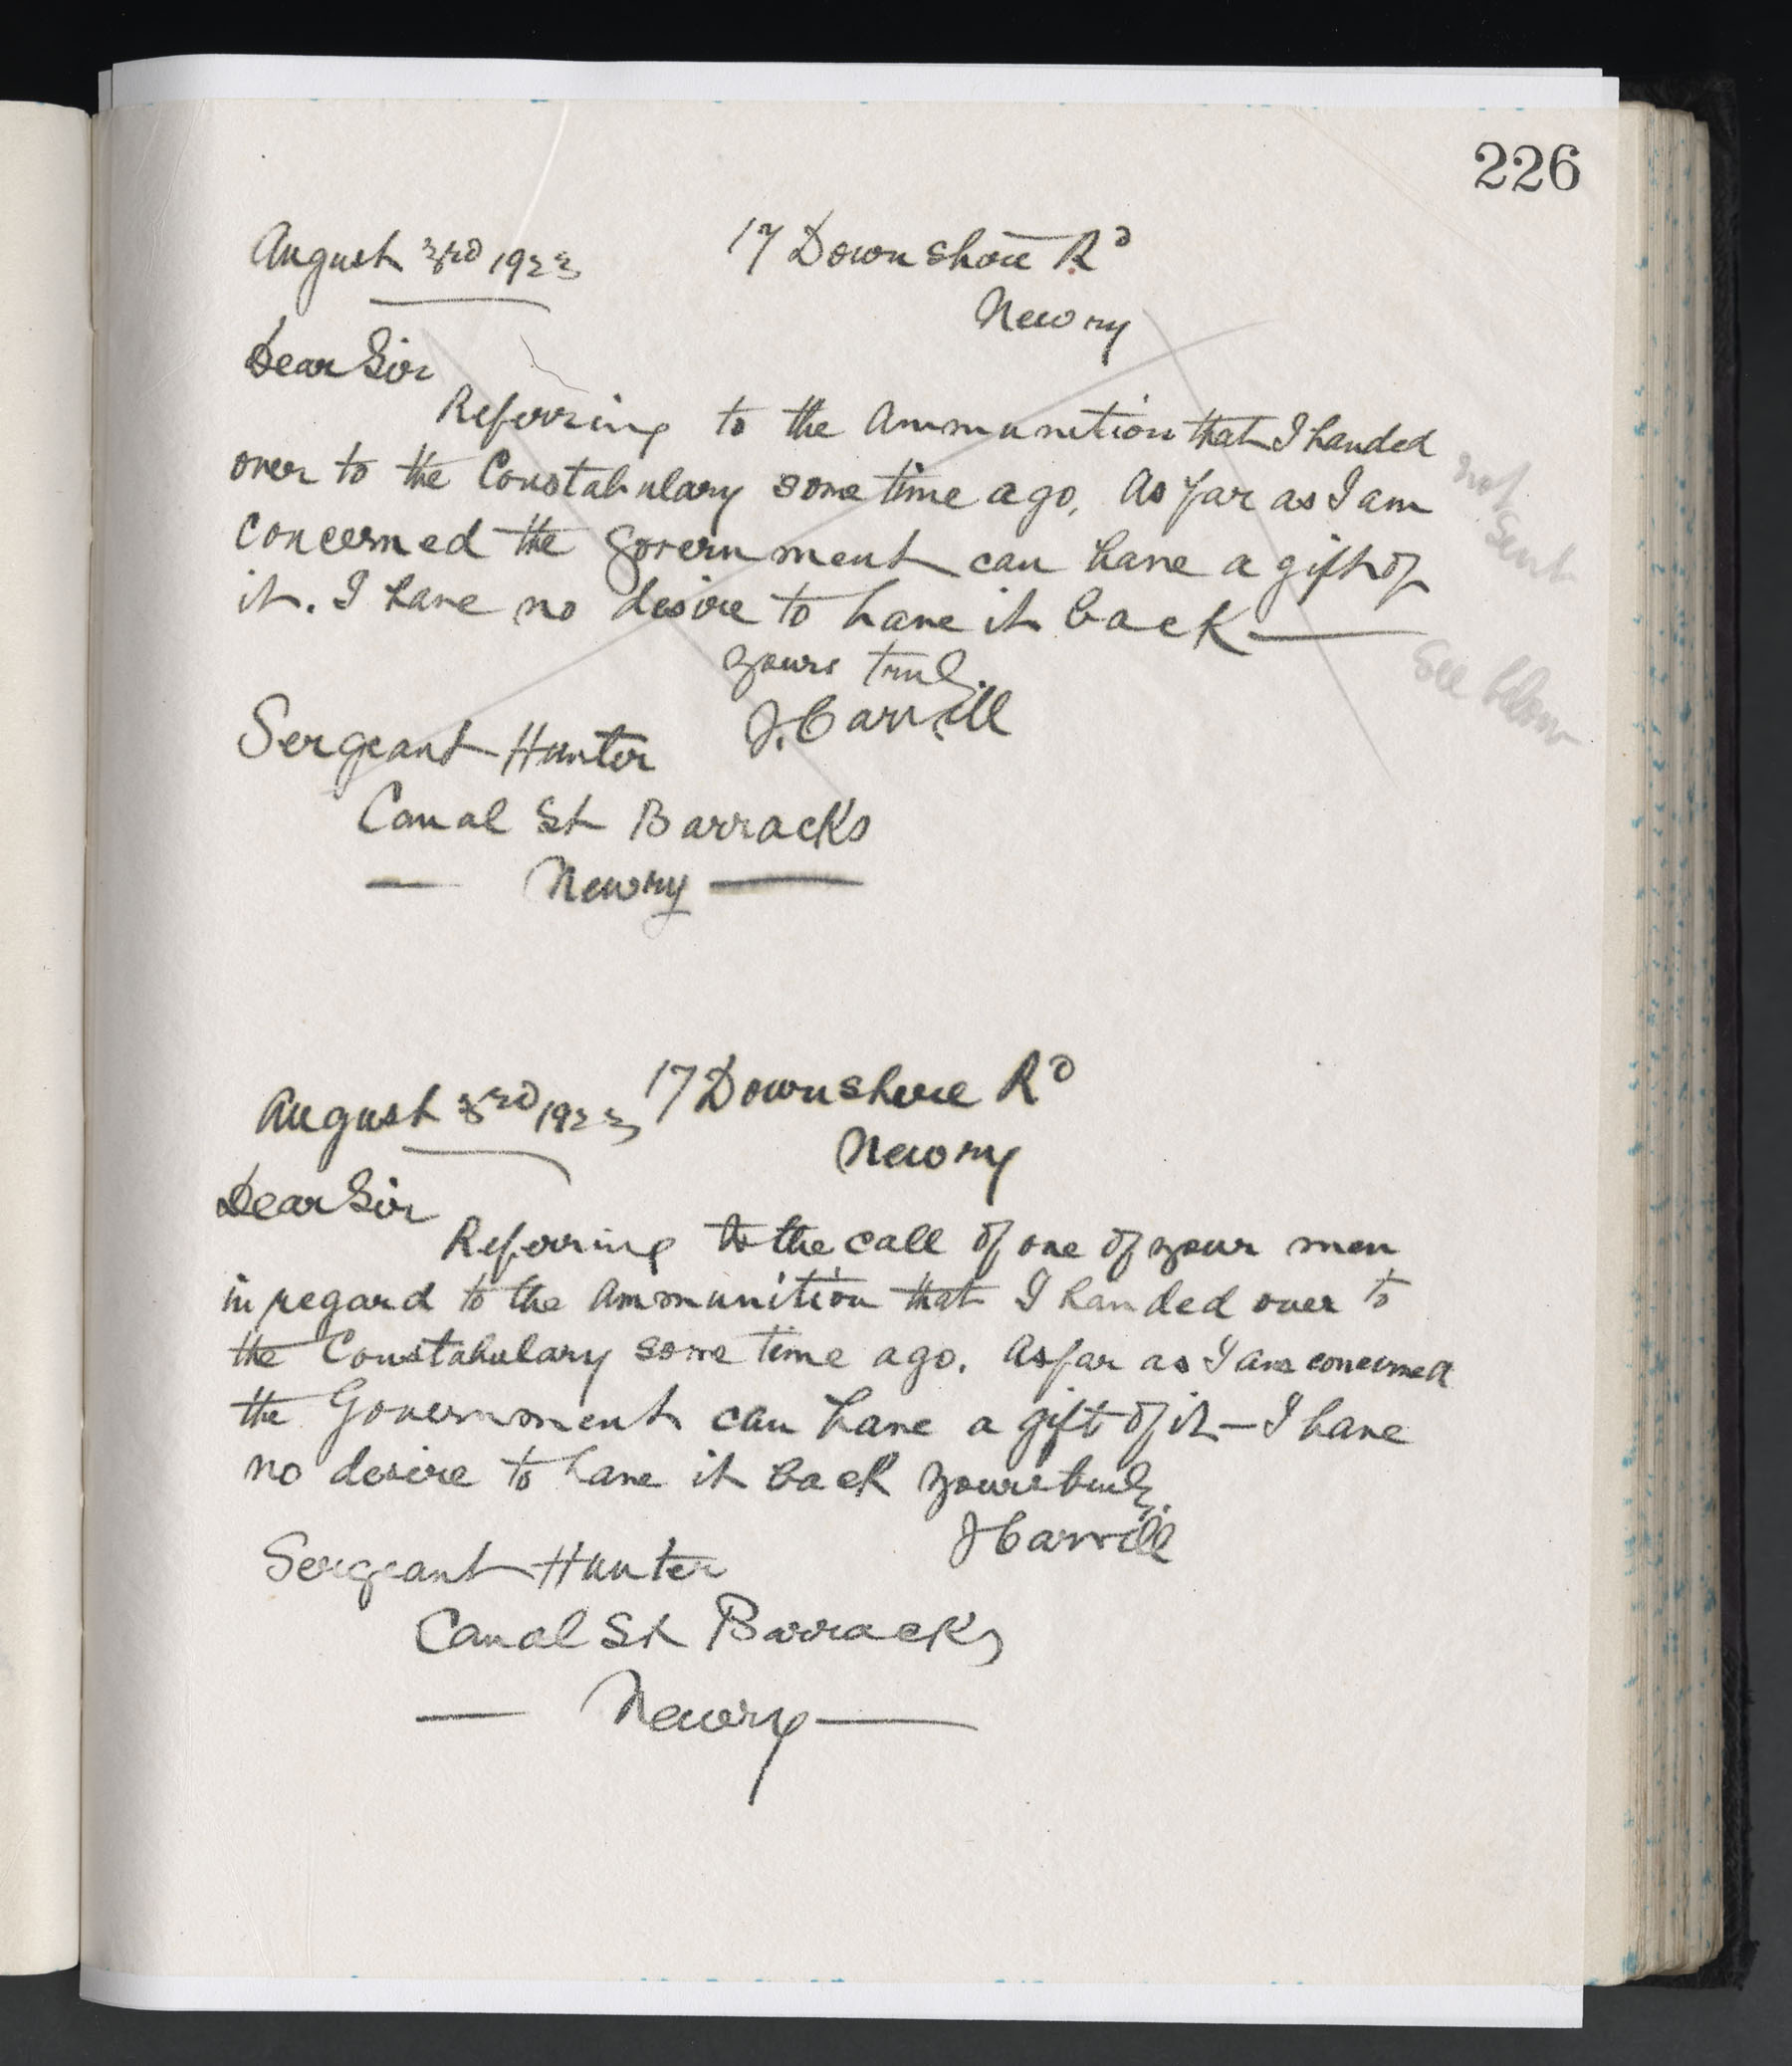 226
August 3rd 1923
17 Downshire Rd
Newry
Dear Sir
Referring to the Ammunition that I handed
over to the Constabulary some time ago. As far as I am
concerned the Government can have a gift of
it. I have no desire to have it back
yours truly
Sergeant Hunter
Canal St Barracks
Newry
not
Sent
See below
August 3rd 1923
17 Downshire Rd
Newry
Dear Sir
Referring to the call of one of your men
in regard to the Ammunition that I handed over to
the Constabulary some time ago. As far as I am concerned
the Government can have a gift of it — I have
no desire to have it back yours truly
Sergeant Hunter
Canal St Barracks
Newry